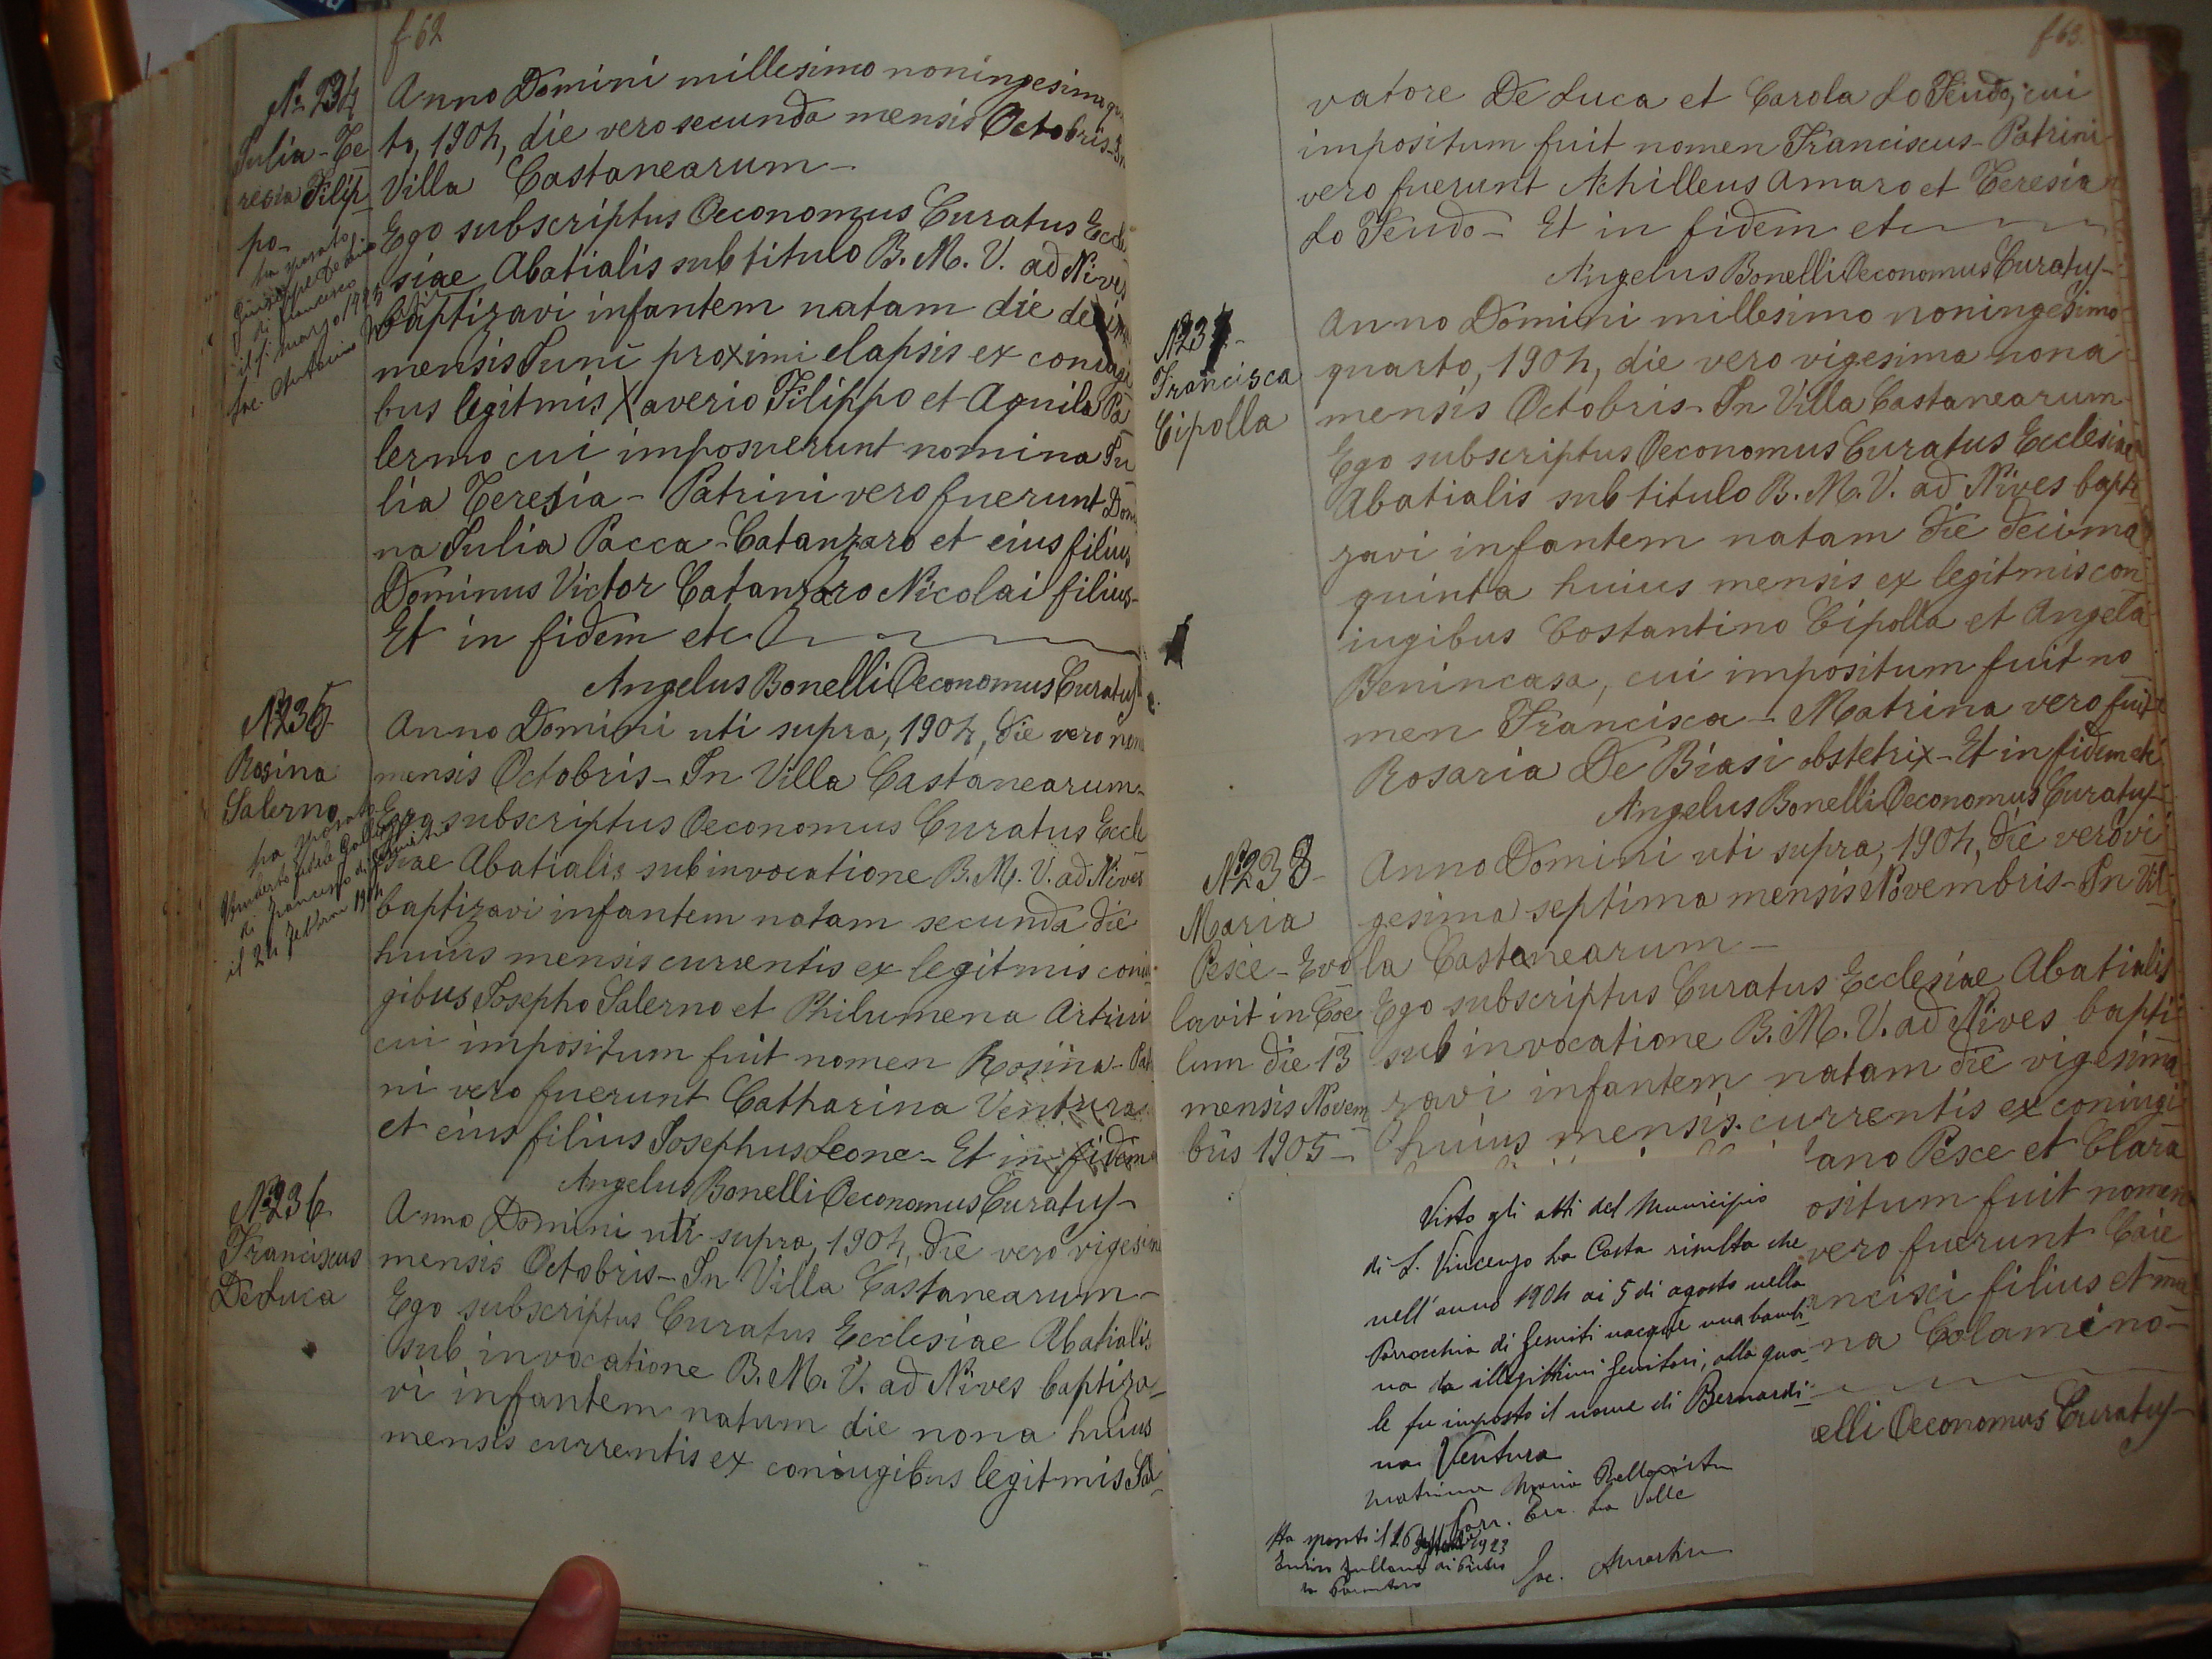 f 62
Nº 234
Julia-Te
resia Filip
po-
ha sposato
Giuseppe De
di Francesco
il marzo 1925
Sac. Antonio
Anno Domini millesimo noningesimo
to, 1904, die vero secunda mensis Octobris-In
Villa Castanearum-
Ego subscriptus Oeconomus Curatus Eccle
siae Abatialis sub titulo B. M. V. ad Nives
baptizavi infantem natam die
mensis Juni proximi elapsis ex coniugi
bus legitmis Xaverio Filippo et Aquila Pa
lermo cui imposuerunt nomina Ju
lia Teresia- Patrini vero fuerunt Dom
na Julia Pacca-Catanzaro et eius filius
Dominus Victor Catanzaro Nicolai filius-
Et in fidem etc
Angelus Bonelli Oeconomus Curatus-
Nº 235
Rosina
Salerno
ha sposato
Umberto
di Francesco di
il 24 febbraio 19
Anno Domini uti supra, 1904, die vero nona
mensis Octobris-In Villa Castanearum-
Ego subscriptus Oeconomus Curatus Eccle
siae Abatialis sub invocatione B. M. V. ad Nives
baptizavi infantem natam secunda die
huius mensis currentis ex legitmis coniu
gibus Josepho Salerno et Philumena Arturi
cui impositum fuit nomen Rosina- Patri
ni vero fuerunt Catharina Ventura
et eius filius Josephus Leone- Et in fidem
Angelus Bonelli Oeconomus Curatus-
Nº 236
Franciscus
De Luca
Anno Domini uti supra, 1904, die vero vigesima
mensis Octobris-In Villa Castanearum-
Ego subscriptus Curatus Ecclesiae Abatialis
sub invocatione B. M. V. ad Nives baptiza-
vi infantem natum die nona huius
mensis currentis ex coniugibus legitmis Sal-
f 63.
vatore De Luca et Carola Lo Feudo, cui
impositum fuit nomen Franciscus- Patrini
vero fuerunt Achilleus Amaro et Teresia
Lo Feudo- Et in fidem etc
Angelus Bonelli Oeconomus Curatus-
Nº 237-
Francisca
Cipolla
Anno Domini millesimo noningesimo
quarto, 1904, die vero vigesima nona
mensis Octobris-In Villa Castanearum-
Ego subscriptus Oeconomus Curatus Ecclesiae
Abatialis sub titulo B. M. V. ad Nives bapti
zavi infantem natam die decima
quinta huius mensis ex legitmis con
iugibus Costantino Cipolla et Angela
Benincasa, cui impositum fuit no
men Francisca- Matrina vero fuit
Rosaria De Biasi obstetrix-Et in fidem etc
Angelus Bonelli Oeconomus Curatus-
Nº 238-
Maria
Pesce-Evo
lavit in Coe
lum die 13
mensis Novem
bris 1905-
Anno Domini uti supra, 1904, die vero vi
gesima septima mensis Novembris-In Vil
la Castanearum-
Ego subscriptus Curatus Ecclesiae Abatialis
sub invocatione B. M. V. ad Nives bapti
zavi infantem natam die vigesima
huius mensis currentis ex coniugi
ano Pesce et Clara
ositum fuit nomen
vero fuerunt
ancisci filius et ma
na Colamino-
elli Oeconomus Curatus-
Visto gli atti del Municipio
di S. Vincenzo La Costa risulta che
nell'anno 1904 ai 5 di agosto nella
Parrocchia di Gesuiti nacque una bambi-
na da illegittimi genitori, alla qua-
le fu imposto il nome di Bernardi-
na Ventura
matrina Maria
Parr. La Valle
Ha sposato il 26 1923
di Pietro
Sac.